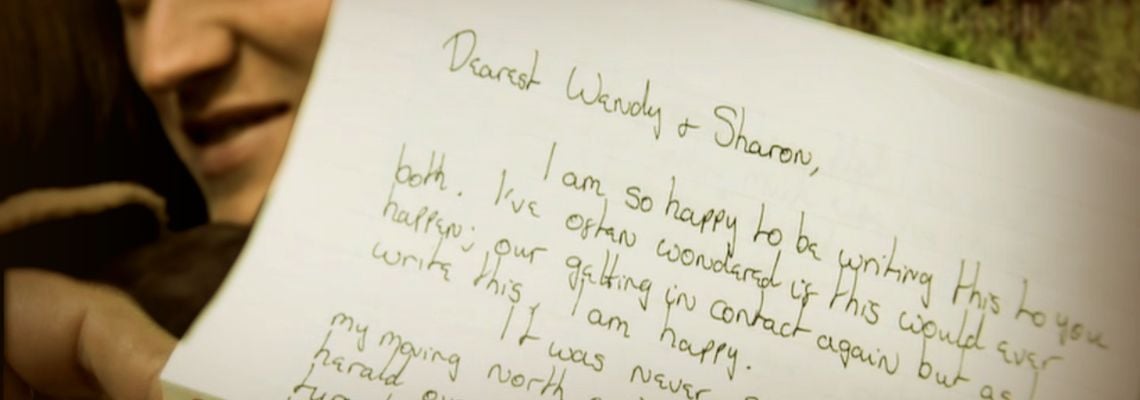 Dearest Wendy & Sharon,
I am so happy to be writing this to you
both. I've often wondered if this would ever
happen; our getting in contact again but as I
write this, I am happy.
It was never
my moving north
herald